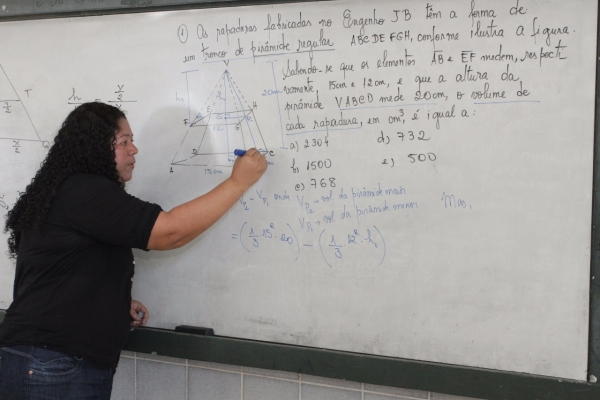 ① As rapaduras fabricadas no Engenho JB têm a forma de
um tronco de pirâmide regular ABCDEFGH, conforme ilustra a figura.
Sabendo-se que os elementos AB e EF medem, respecti
vamente, 15cm e 12cm, e que a altura da
pirâmide VABCD mede 20cm, o volume de
cada rapadura, em cm³, é igual a:
a) 2304
d) 732
b) 1500
e) 500
c) 768
V
20cm
h₁
E
H
F
G
D
C
A
15cm
T
V/2
x/2
h
V/2
x/2
V_P2 - V_P1 onde V_P2 → vol da pirâmide maior
V_P1 → vol da pirâmide menor
Mas,
= (1/3 · 15² · 20) - (1/3 · 12² · h₁)